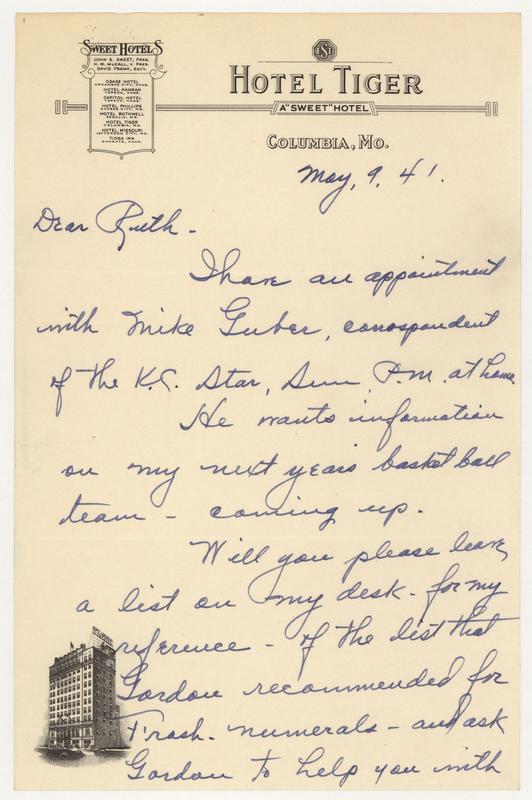 SWEET HOTELS
JOHN S. SWEET, PRES.
H. W. McCALL, V. PRES.
DAVID FRANK, SECY.
OSAGE HOTEL
ARKANSAS CITY, KANS.
HOTEL KANSAN
TOPEKA, KANS.
CAPITOL HOTEL
TOPEKA, KANS.
HOTEL PHILLIPS
KANSAS CITY, MO.
HOTEL BOTHWELL
SEDALIA, MO.
HOTEL TIGER
COLUMBIA, MO.
HOTEL MISSOURI
JEFFERSON CITY, MO.
TIOGA INN
CHANUTE, KANS.
HOTEL TIGER
A "SWEET" HOTEL
COLUMBIA, MO.
May, 9, 41.
Dear Ruth -
I have an appointment
with Mike Guber, corrospondent
of the K.C. Star, Sun, P.M. at home.
He wants information
on my next years basket ball
team - coming up.
Will you please leave
a list on my desk - for my
reference - of the list that
Gordon recommended for
Frosh. numerals - and ask
Gordon to help you with